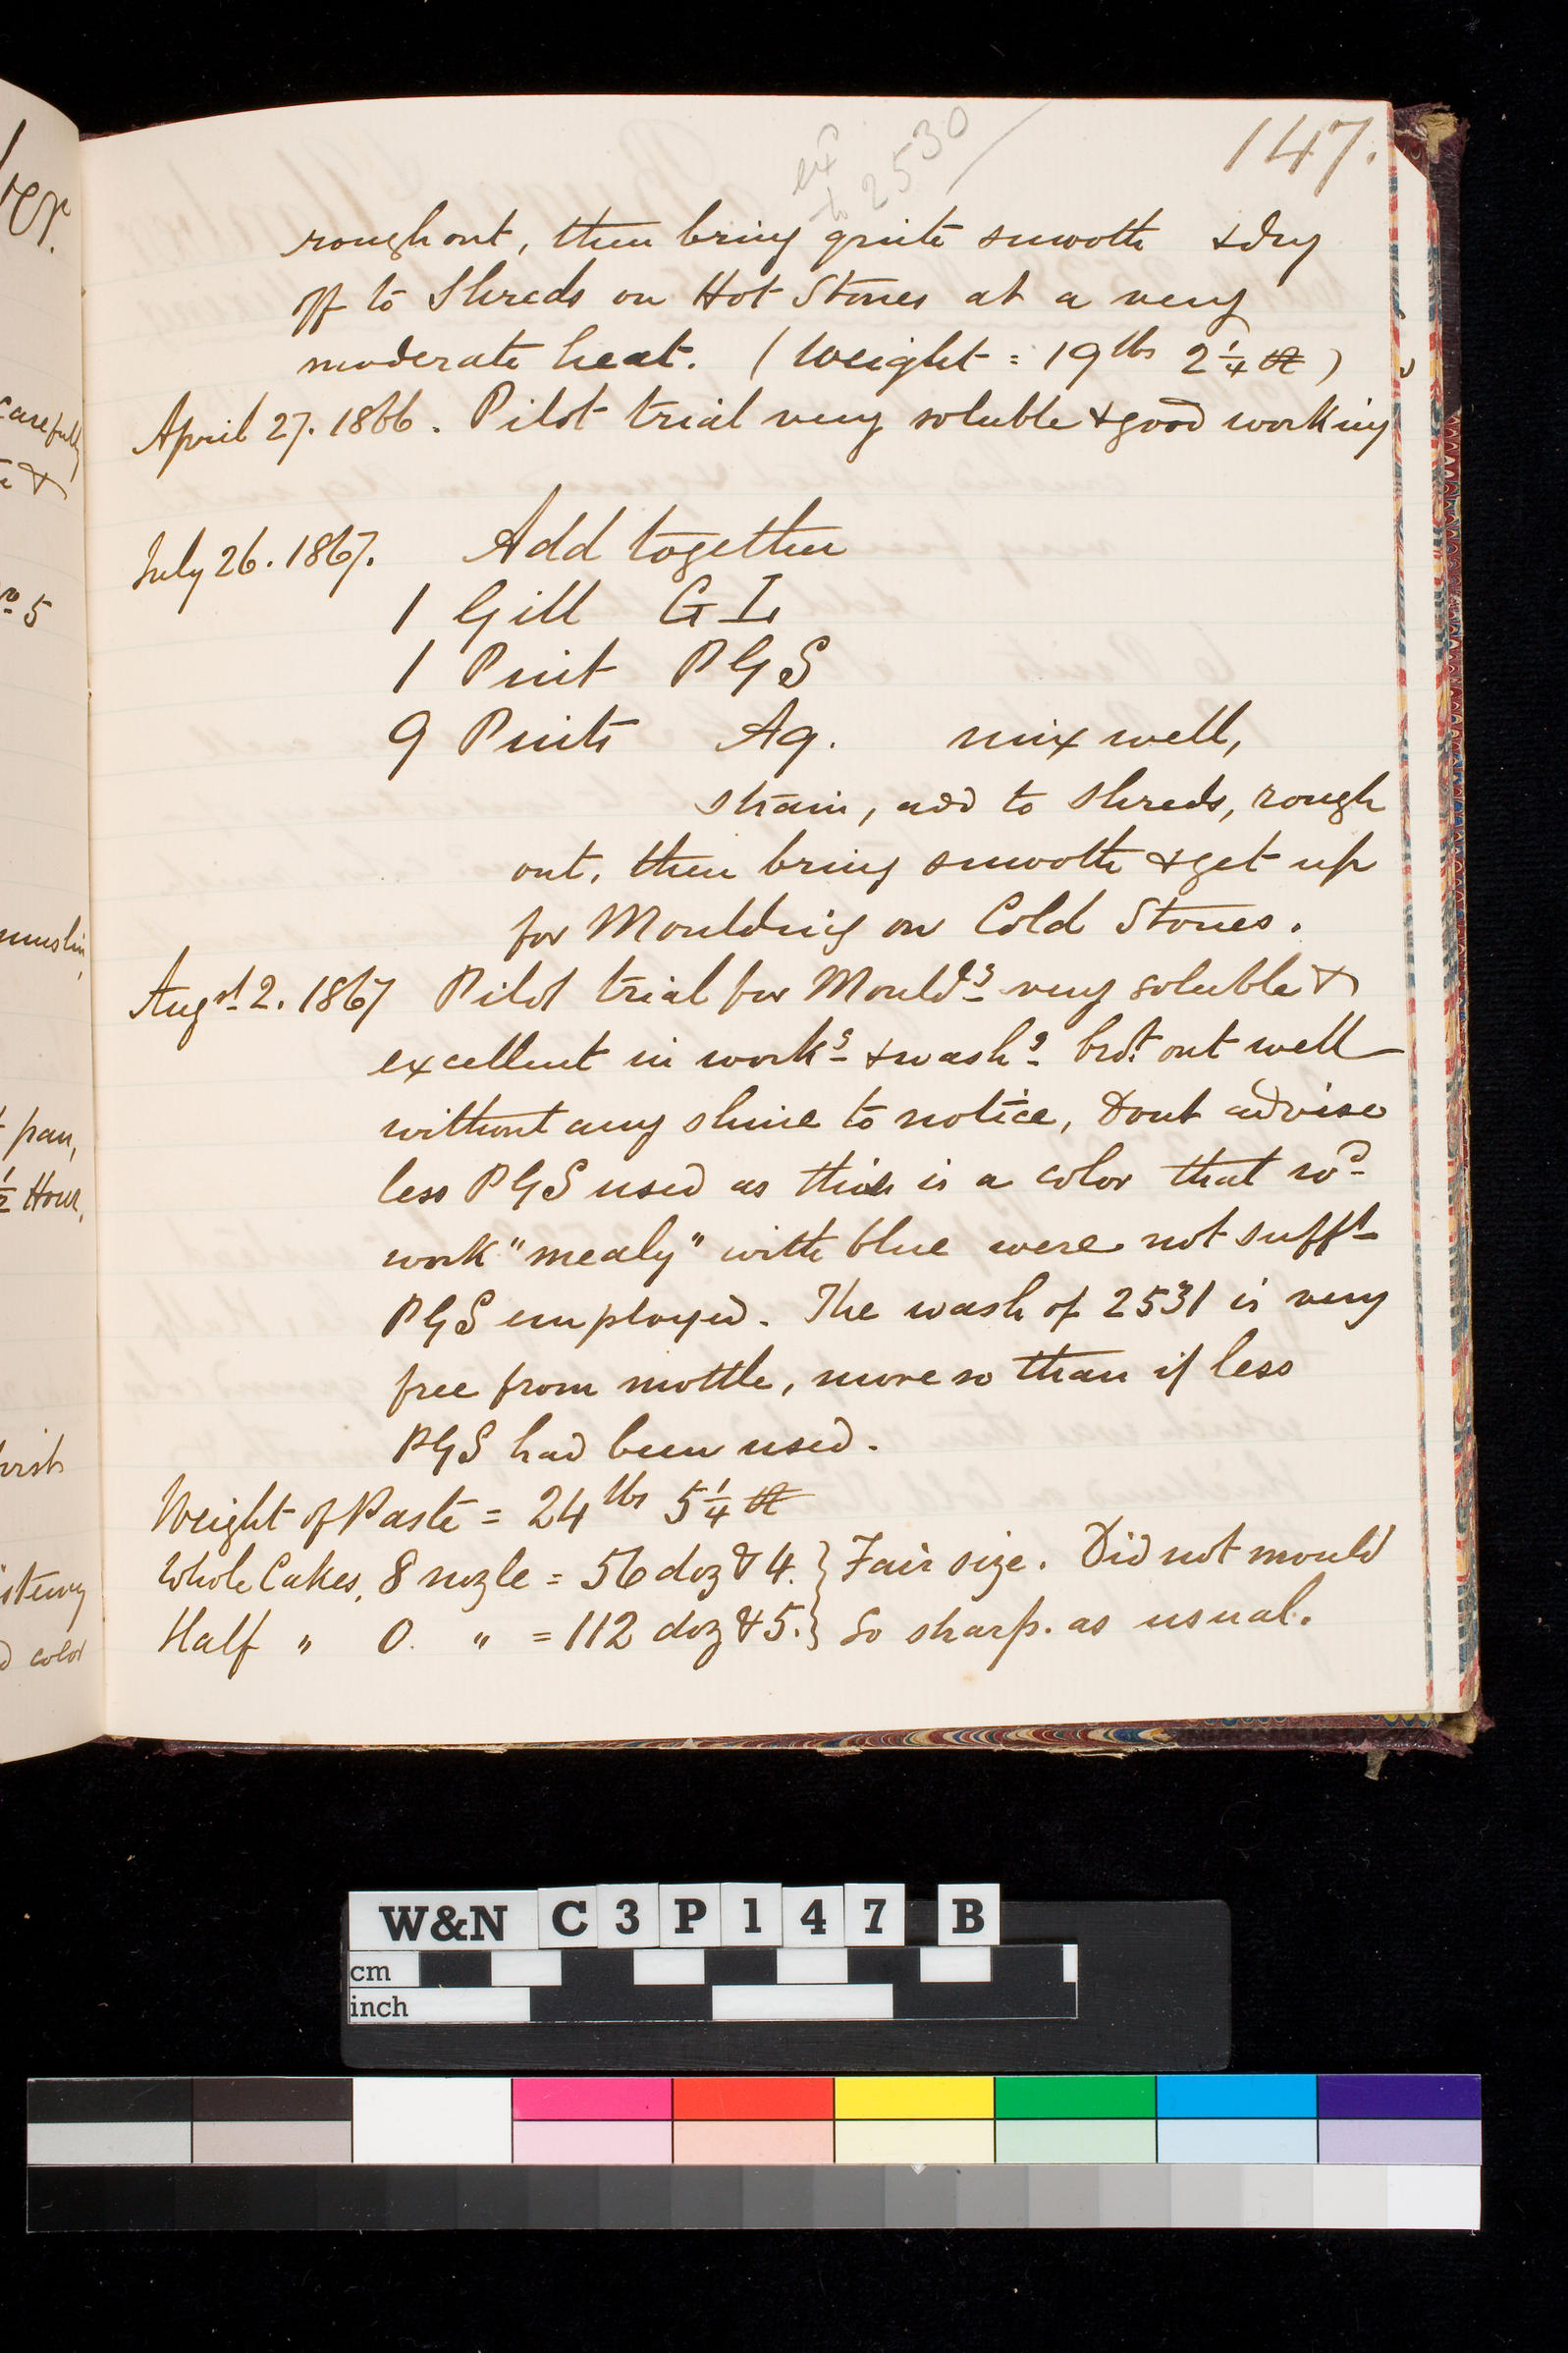 147.
ex
to 2530
rough out, then bring quite smooth & dry
off to Shreds on Hot Stones at a very
moderate heat. (Weight = 19 lbs 2 1/4 )
April 27. 1866. Pilot trial very soluble & good working
July 26. 1867. Add together
1 Gill G I
1 Pint PGS
9 Pints Aq. mix well,
strain, add to shreds, rough
out, then bring smooth & get up
for Moulding on Cold Stones.
Augst 2. 1867 Pilot trial for Mouldg very soluble &
excellent in workg & washg brot out well
without any shine to notice, dont advise
less PGS used as this is a color that wd
work "mealy" with blue were not sufft
PGS employed. The wash of 2531 is very
free from mottle, more so than if less
PGS had been used.
Weight of Paste = 24 lbs 5 1/4
Whole Cakes, 8 nozle = 56 doz & 4. } Fair size. Did not mould
Half " 0. " = 112 doz & 5. } so sharp. as usual.
carefully
&
5
muslin,
pan,
1/2 Hour,
cold
W&N C3P147 B
cm
inch